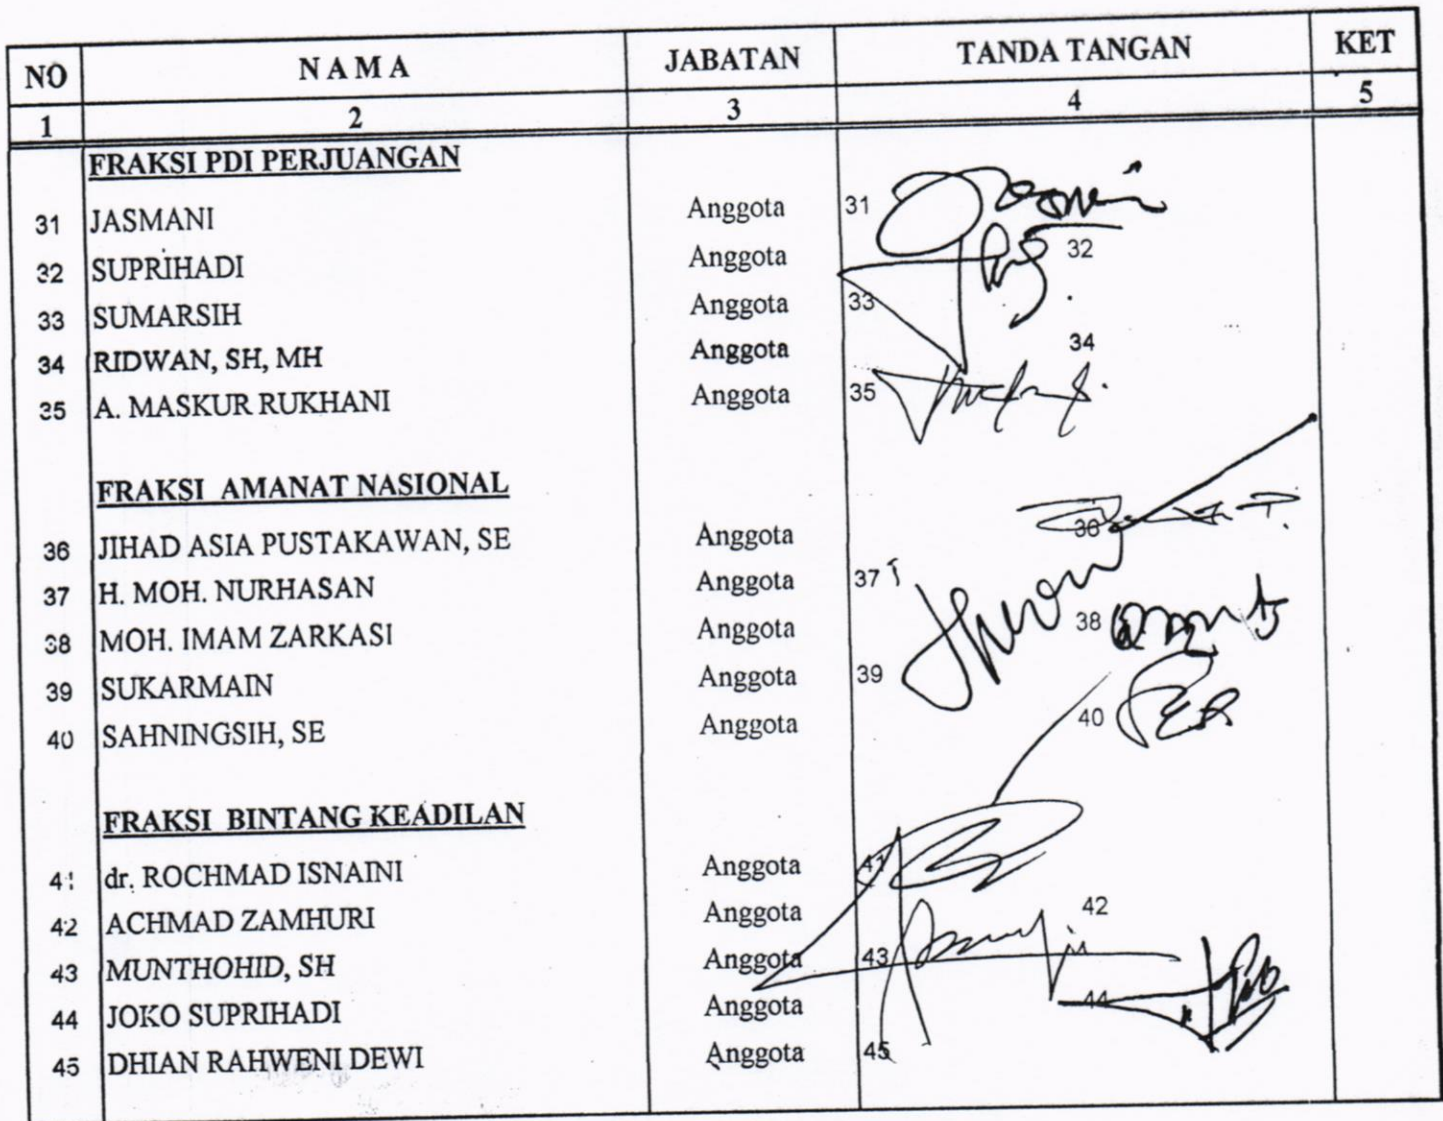 NO NAMA JABATAN TANDA TANGAN KET
1 2 3 4 5
FRAKSI PDI PERJUANGAN
31 JASMANI Anggota 31
32 SUPRIHADI Anggota 32
33 SUMARSIH Anggota 33
34 RIDWAN, SH, MH Anggota 34
35 A. MASKUR RUKHANI Anggota 35
FRAKSI AMANAT NASIONAL
36 JIHAD ASIA PUSTAKAWAN, SE Anggota 36
37 H. MOH. NURHASAN Anggota 37
38 MOH. IMAM ZARKASI Anggota 38
39 SUKARMAIN Anggota 39
40 SAHNINGSIH, SE Anggota 40
FRAKSI BINTANG KEADILAN
41 dr. ROCHMAD ISNAINI Anggota 41
42 ACHMAD ZAMHURI Anggota 42
43 MUNTHOHID, SH Anggota 43
44 JOKO SUPRIHADI Anggota 44
45 DHIAN RAHWENI DEWI Anggota 45